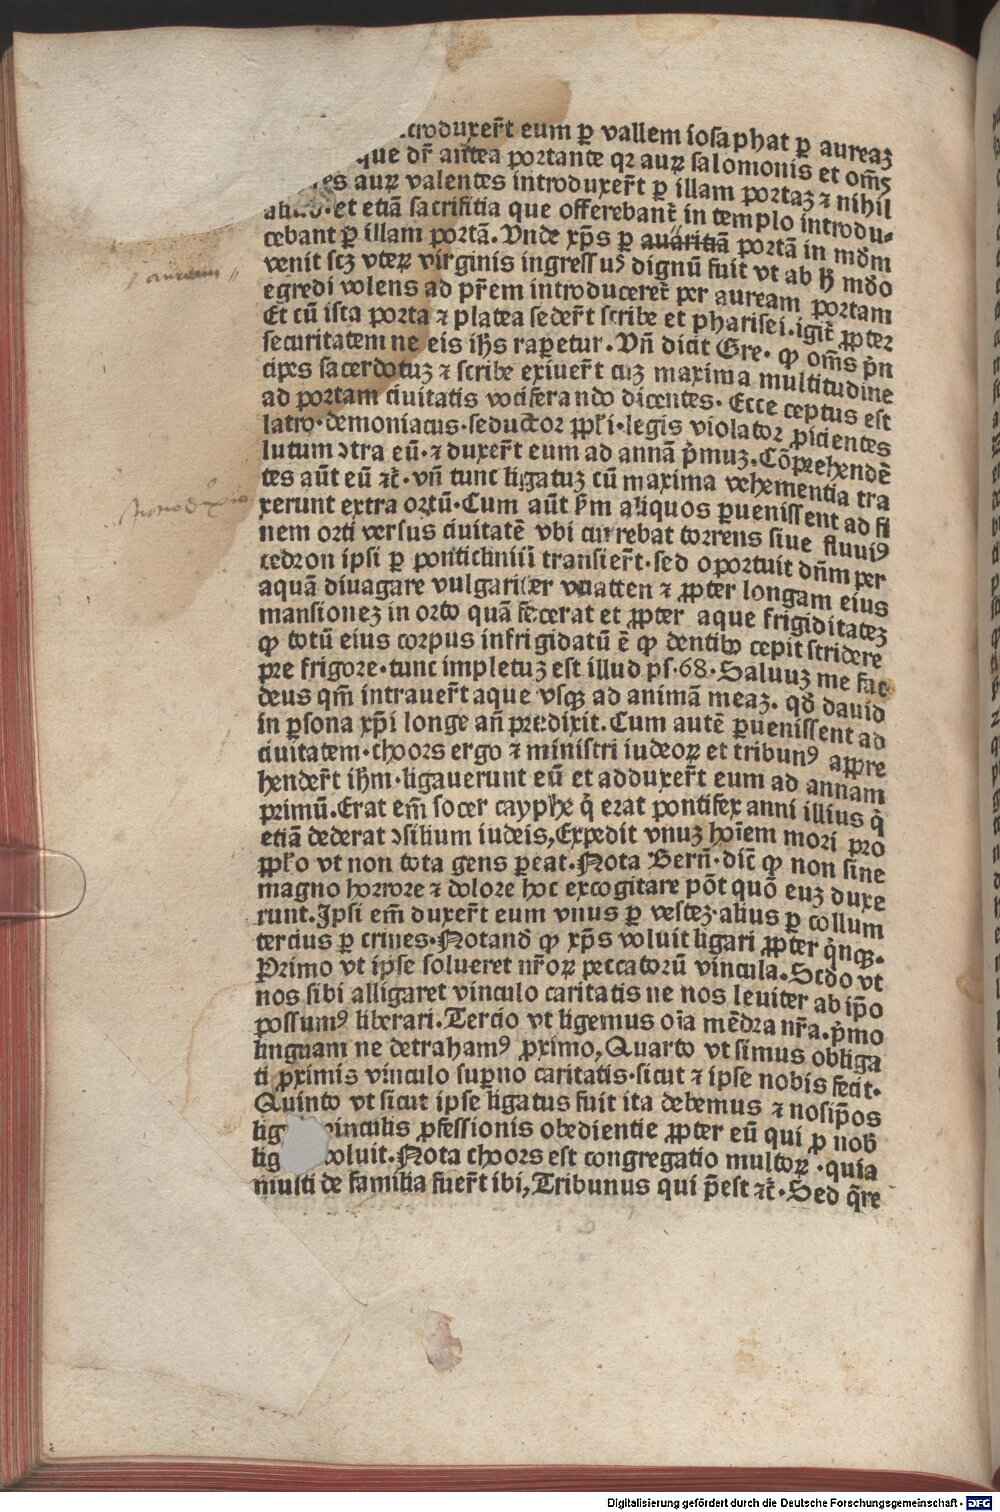 ctroduxer̄t eum ꝑ vallem iosaphat ꝑ aureaꝫ
que dr̄ antea portante qꝛ auꝝ salomonis et om̄s
es auꝝ valentes introduxer̄t ꝑ illam portaꝫ ⁊ nihil
aliud·et etiā sacrifitia que offerebant᷑ in templo introdu-
cebant ꝑ illam portā. Unde xp̄s ꝑ auaritiā portā in mōm
venit scꝫ vteꝝ virginis ingressus dignū fuit vt ab h̄ mōo
egredi volens ad pr̄em introduceret᷑ per auream portam
Et cū ista porta ⁊ platea seder̄t scribe et pharisei·igit᷑ ꝓpter
securitatem ne eis ih̄s raꝑetur. Vn̄ dicit Gre· ꝙ om̄s p̄n
cipes sacerdotuꝫ ⁊ scribe exiuer̄t cuꝫ maxima multitudine
ad portam ciuitatis vociferando dicentes· Ecce ceptus est
latro·demoniacus·seductor ppl̄i·legis violator ꝓicientes
lutum ↄtra eū·⁊ duxer̄t eum ad annā p̄muꝫ.Cōprehendē
tes aūt eū ⁊c̄· vn̄ tunc ligatuꝫ cū maxima vehementia tra
xerunt extra ortū·Cum aūt ꝑm aliquos ꝑuenissent ad fi
nem orti versus ciuitatē vbi currebat torrens siue fluuiꝰ
cedron ipsi ꝑ ponticliniū transier̄t·sed oportuit dn̄m per
aquā diuagare vulgariter vuatten ⁊ ꝓpter longam eius
mansioneꝫ in orto quā fecerat et ꝓpter aque frigiditateꝫ
ꝙ totū eius corpus infrigidatū ē ꝙ dentibꝰ cepit stridere
pre frigore·tunc impletuꝫ est illud ps·68·Saluuꝫ me fac
deus qm̄ intrauer̄t aque vsqꝫ ad animā meaꝫ. qd̄ dauid
in ꝑsona xp̄i longe an̄ predixit.Cum autē ꝑuenissent ad
ciuitatem·choors ergo ⁊ ministri iudeoꝝ et tribunꝰ appre
hender̄t ih̄m·ligauerunt eū et adduxer̄t eum ad annam
primū.Erat em̄ socer cayphe q̄ erat pontifex anni illius q̄
etiā dederat ↄsilium iudeis,Expedit vnuꝫ hoīem mori pro
pplo vt non tota gens ꝑeat.Nota Bern̄·dic̄ ꝙ non sine
magno horrore ⁊ dolore hoc excogitare pōt quō euꝫ duxe
runt.Ipsi em̄ duxer̄t eum vnus ꝑ vesteꝫ·alius ꝑ collum
tercius ꝑ crines·Notand̄ ꝙ xp̄s voluit ligari ꝓpter q̄nqꝫ·
Primo vt ipse solueret nr̄oꝝ peccatorū vincula.Scd̄o vt
nos sibi alligaret vinculo caritatis ne nos leuiter ab ip̄o
possumꝰ liberari.Tercio vt ligemus oīa mēdra nr̄a.p̄mo
linguam ne detrahamꝰ ꝓximo,Quarto vt simus obliga
ti ꝓximis vinculo suꝑno caritatis·sicut ⁊ ipse nobis fecit·
Quinto vt sicut ipse ligatus fuit ita debemus ⁊ nosip̄os
lig vinculis ꝓfessionis obedientie ꝓpter eū qui ꝓ nob̄
lig voluit.Nota choors est congregatio multoꝝ·quia
multi de familia fuer̄t ibi,Tribunus qui p̄est ⁊c̄·Sed q̄re
Digitalisierung gefördert durch die Deutsche Forschungsgemeinschaft - DFG